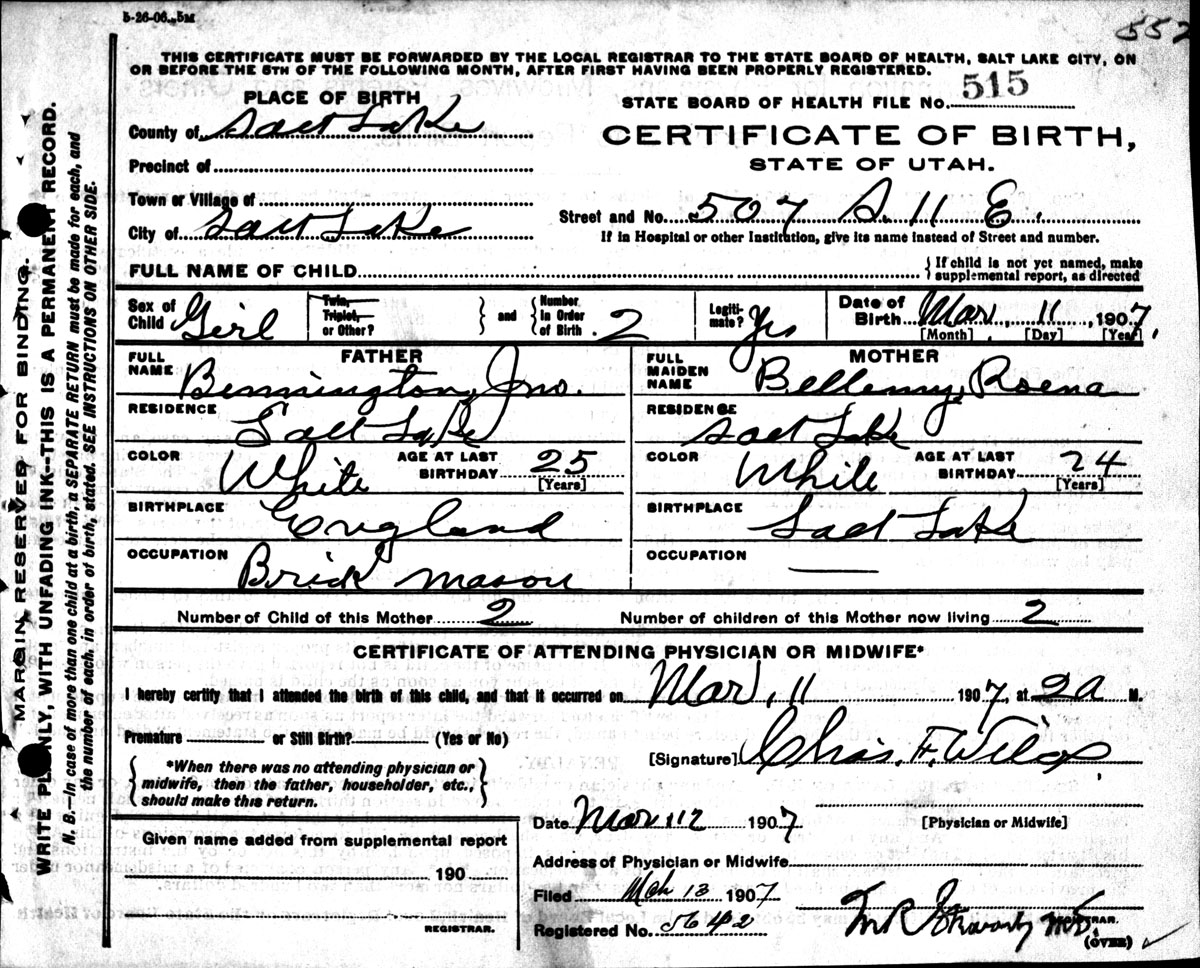 5-26-06.,5M
552
THIS CERTIFICATE MUST BE FORWARDED BY THE LOCAL REGISTRAR TO THE STATE BOARD OF HEALTH, SALT LAKE CITY, ON
OR BEFORE THE 5TH OF THE FOLLOWING MONTH, AFTER FIRST HAVING BEEN PROPERLY REGISTERED.
PLACE OF BIRTH
STATE BOARD OF HEALTH FILE NO. 515
County of Salt Lake
CERTIFICATE OF BIRTH,
Precinct of
STATE OF UTAH.
Town or Village of
Street and No. 507 S. 11 E.
City of Salt Lake
If in Hospital or other Institution, give its name instead of Street and number.
FULL NAME OF CHILD
{ If child is not yet named, make
supplemental report, as directed
Sex of Child Girl
Twin, Triplet, or Other?
{ and }
Number in Order of Birth . 2
Legiti-mate? Yes
Date of Birth Mar. 11, 1907,
[Month] [Day] [Year]
FATHER
FULL NAME Bennington, Jno.
RESIDENCE Salt Lake
COLOR White AGE AT LAST BIRTHDAY 25
[Years]
BIRTHPLACE England
OCCUPATION Brick Mason
MOTHER
FULL MAIDEN NAME Bellemy, Roena
RESIDENCE Salt Lake
COLOR White AGE AT LAST BIRTHDAY 24
[Years]
BIRTHPLACE Salt Lake
OCCUPATION
Number of Child of this Mother 2 Number of children of this Mother now living 2
CERTIFICATE OF ATTENDING PHYSICIAN OR MIDWIFE*
I hereby certify that I attended the birth of this child, and that it occurred on Mar. 11 1907, at 2 A M.
Premature or Still Birth? (Yes or No)
[Signature] Chas. F. Wilcox
{ *When there was no attending physician or
midwife, then the father, householder, etc.,
should make this return. }
Date Mar 12 1907
[Physician or Midwife]
Given name added from supplemental report
190
REGISTRAR.
Address of Physician or Midwife
Filed Mch 13 1907
Registered No. 642
M.D.
REGISTRAR.
(OVER)
MARGIN RESERVED FOR BINDING.
WRITE PLAINLY, WITH UNFADING INK—THIS IS A PERMANENT RECORD.
N. B.—In case of more than one child at a birth, a SEPARATE RETURN must be made for each, and
the number of each, in order of birth, stated. SEE INSTRUCTIONS ON OTHER SIDE.